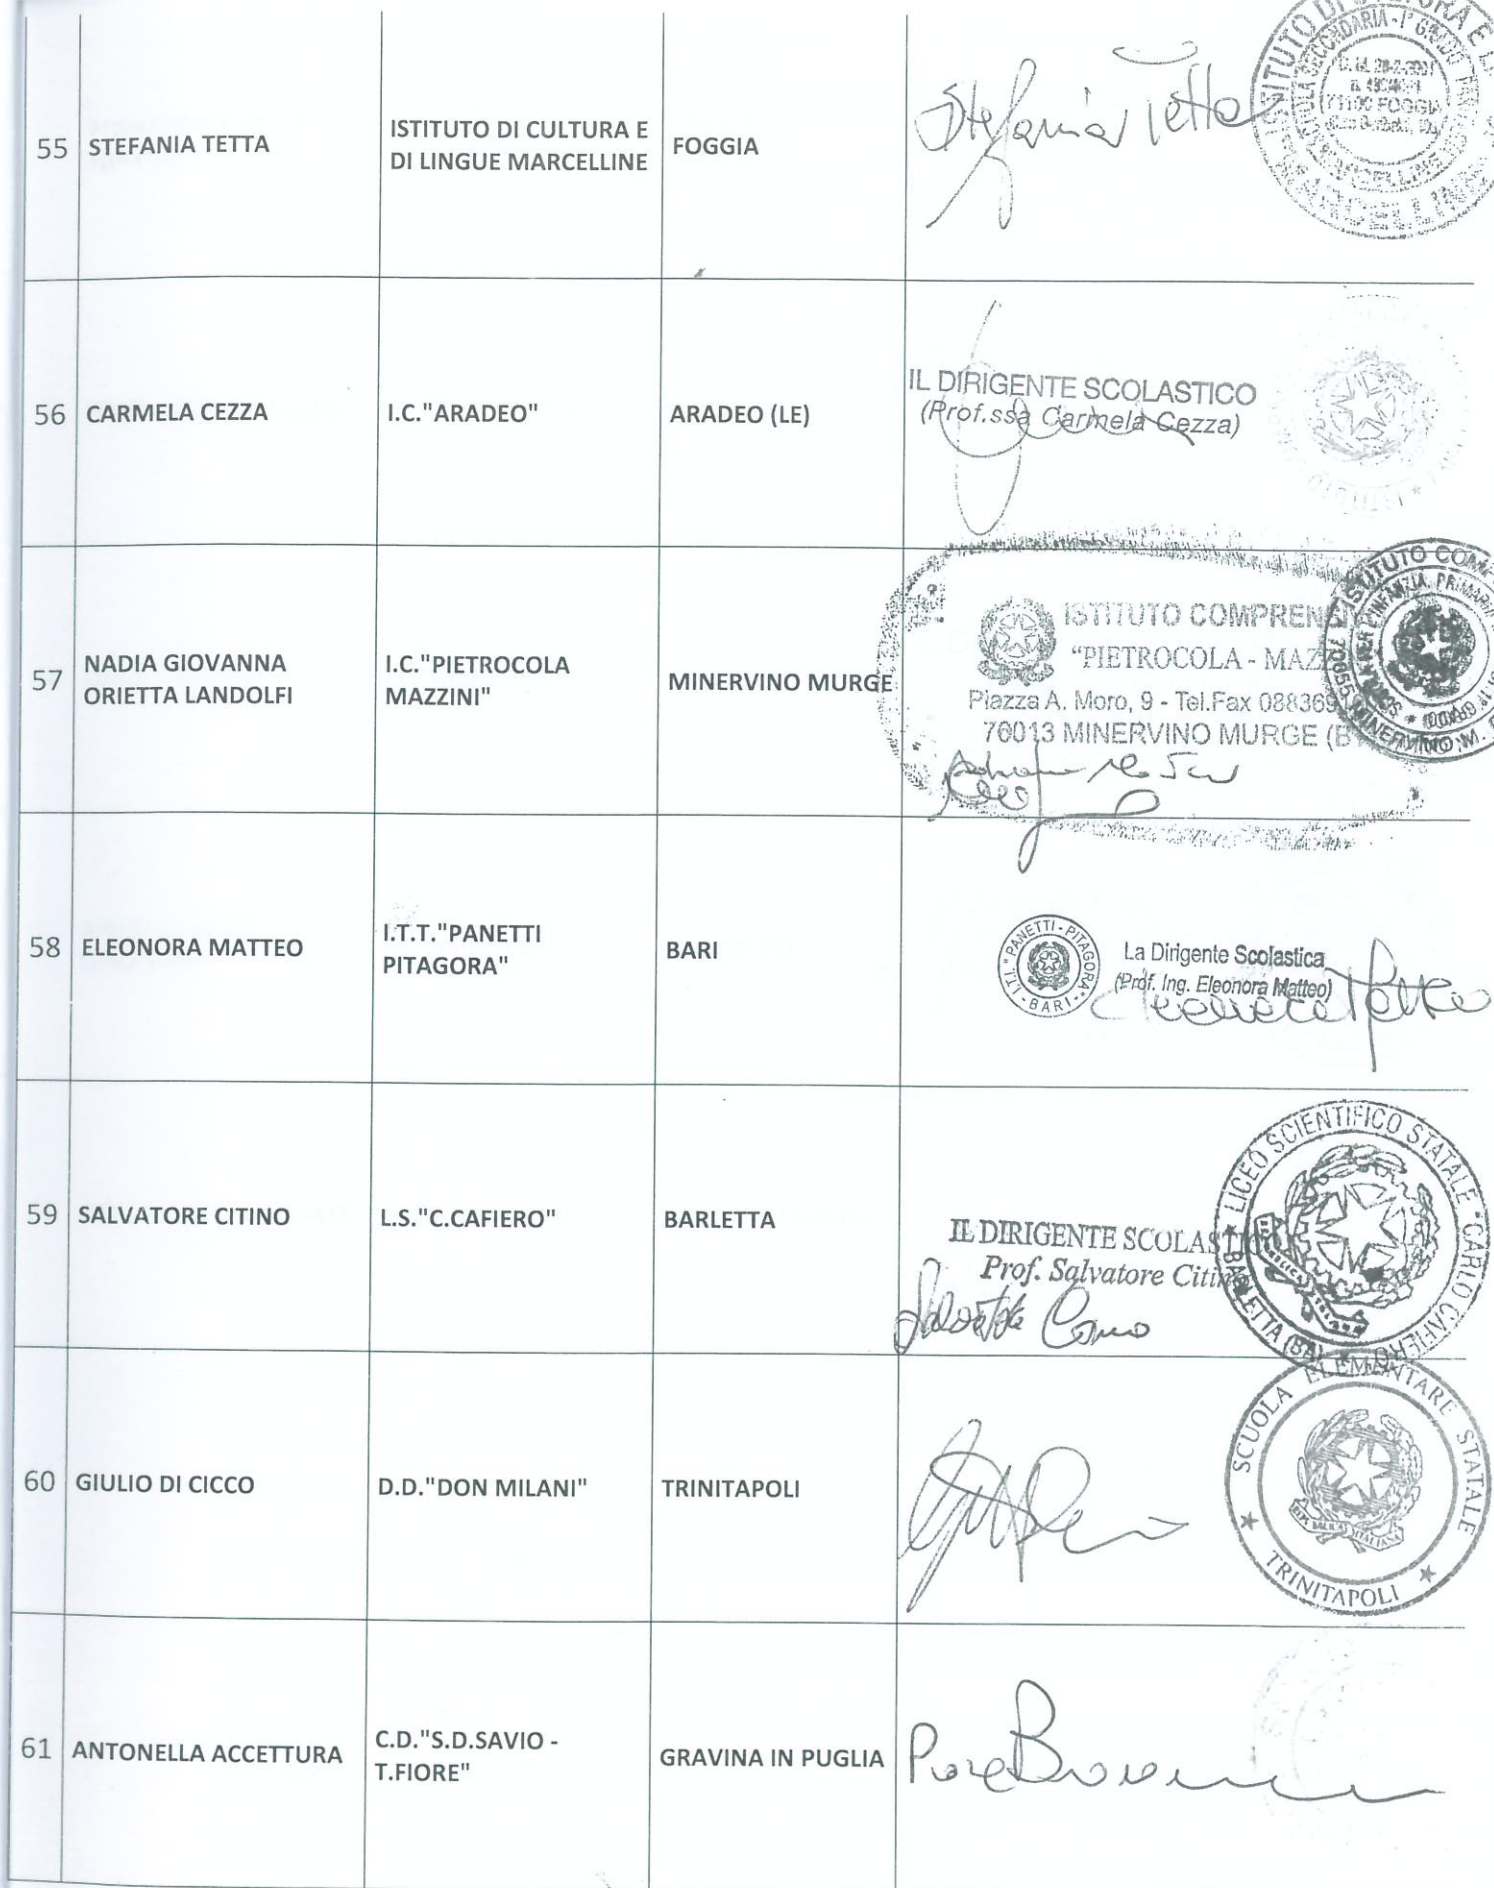 55 STEFANIA TETTA
ISTITUTO DI CULTURA E
DI LINGUE MARCELLINE
FOGGIA
Stefania Tetta
71100 FOGGIA
MARCELLINE
56 CARMELA CEZZA
I.C."ARADEO"
ARADEO (LE)
IL DIRIGENTE SCOLASTICO
(Prof.ssa Carmela Cezza)
57 NADIA GIOVANNA
ORIETTA LANDOLFI
I.C."PIETROCOLA
MAZZINI"
MINERVINO MURGE
ISTITUTO COMPRENSIV
"PIETROCOLA - MAZ
Piazza A. Moro, 9 - Tel.Fax 088369
76013 MINERVINO MURGE (B
58 ELEONORA MATTEO
I.T.T."PANETTI
PITAGORA"
BARI
I.T.T. "PANETTI-PITAGORA" - BARI -
La Dirigente Scolastica
(Prof. Ing. Eleonora Matteo)
Eleonora Matteo
59 SALVATORE CITINO
L.S."C.CAFIERO"
BARLETTA
IL DIRIGENTE SCOLAST
Prof. Salvatore Citino
LICEO SCIENTIFICO STATALE "CARLO CAFIERO"
BARLETTA (BA)
60 GIULIO DI CICCO
D.D."DON MILANI"
TRINITAPOLI
SCUOLA ELEMENTARE STATALE
TRINITAPOLI
61 ANTONELLA ACCETTURA
C.D."S.D.SAVIO -
T.FIORE"
GRAVINA IN PUGLIA